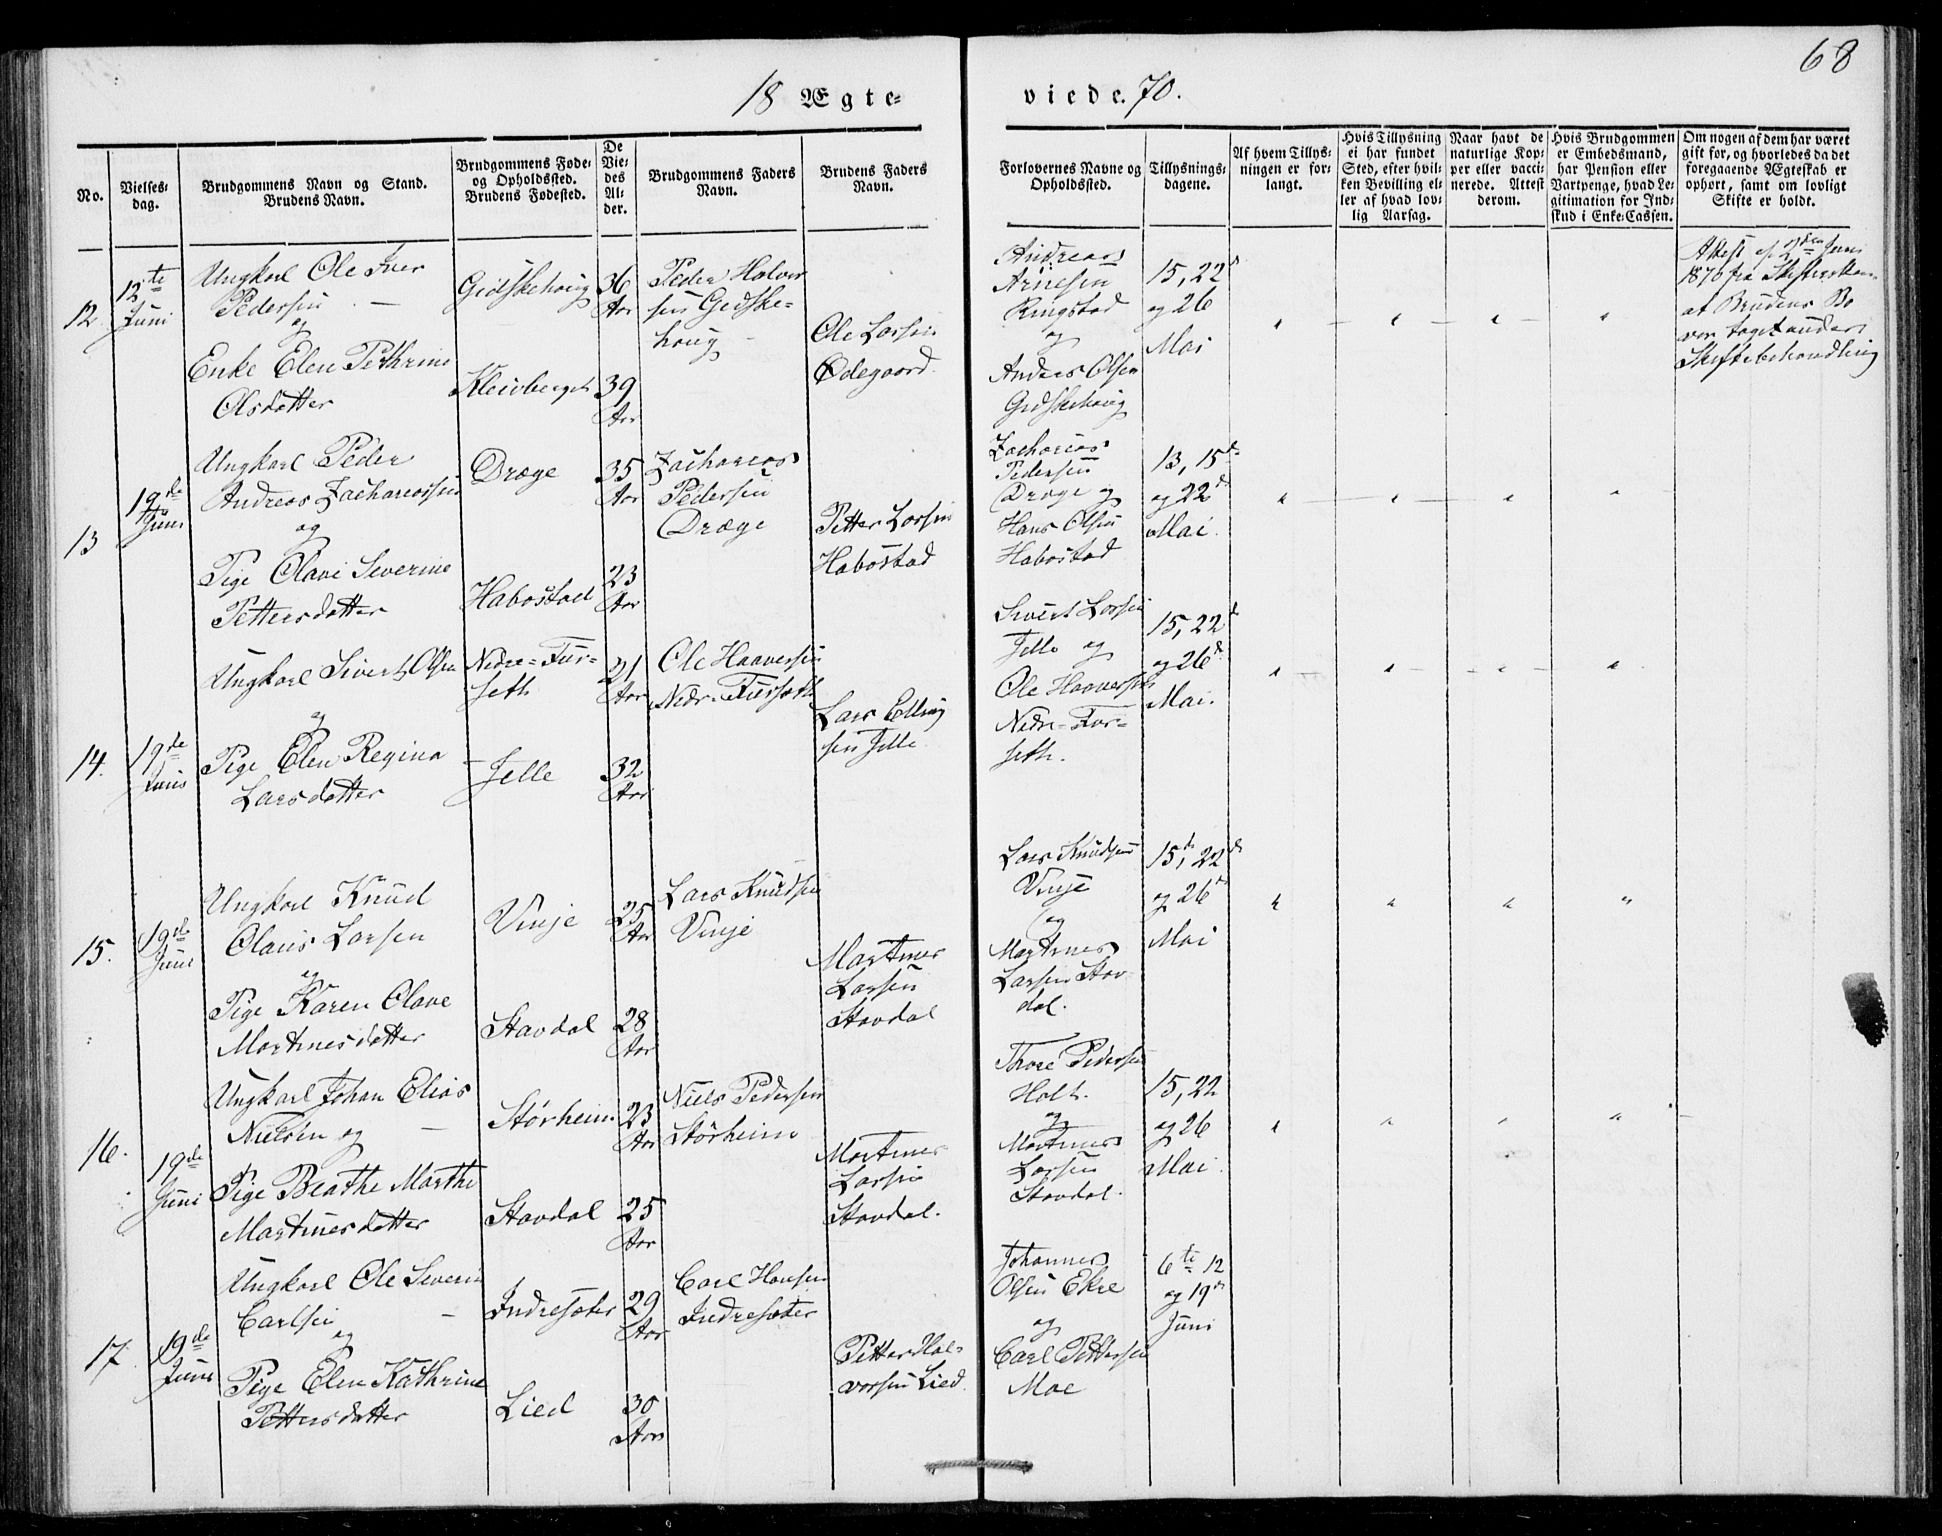 68
18 Ægte=
viede. 70.
No.
Vielses-
dag.
Brudgommens Navn og Stand.
Brudens Navn.
Brudgommens Føde-
og Opholdssted.
Brudens Fødested.
De
Vie-
des
Al-
der.
Brudgommens Faders
Navn.
Brudens Faders
Navn.
Forlovernes Navne og
Opholdssted.
Tillysnings-
dagene.
Af hvem Tillys-
ningen er for-
langt.
Hvis Tillysning
ei har fundet
Sted, efter hvil-
ken Bevilling el-
ler af hvad lov-
lig Aarsag.
Naar havt de
naturlige Kop-
per eller vacci-
nerede. Attest
derom.
Hvis Brudgommen
er Embedsmand,
har Pension eller
Vartpenge, hvad Le-
gitimation for Ind-
skud i Enke-Cassen.
Om nogen af dem har været
gift for, og hvorledes da det
foregaaende Ægteskab er
ophørt, samt om lovligt
Skifte er holdt.
12.
12te
Juni
Ungkarl Ole Iver
Pedersen
og
Enke Elen Pethrine
Olsdatter
Gidskehoug
Kleivberget
36
Aar
39
Aar
Peder Halvor
sen Gidske-
houg
Ole Larsen
Ødegaard.
Andreas
Arnesen
Ringstad
og
Anders Olsen
Gidskehoug
15, 22d
og 26
Mai
Attest af 2den Juni
1870 fra Skifteretten
at Brudens Bo
var taget under
Skiftebehandling
13
19de
Juni
Ungkarl Peder
Andreas Zachariassen
og
Pige Olave Severine
Pettersdatter
Dræge
Habostad
35
Aar
23
Aar
Zacharias
Pedersen
Dræge
Petter Larsen
Habostad
Zacharias
Pedersen
Dræge og
Hans Olsen
Habostad
13, 15de
og 22d
Mai.
14.
19de
Juni
Ungkarl Sivert Olsen
og
Pige Elen Regina
Larsdatter
Nedre=Fur-
seth
Jelle
21
Aar
32
Aar
Ole Haaversen
Nedr=Furseth
Lars Elling
sen Jelle.
Sivert Larsen
Jelle og
Ole Haaversen
Nedre=Fur-
seth.
15, 22d
og 26d.
Mai.
15.
19de
Juni
Ungkarl Knud
Olaus Larsen
og
Pige Karen Olave
Martinesdatter
Vinje
Stavdal
25
Aar
28
Aar
Lars Knudsen
Vinje
Martines
Larsen
Stavdal
Lars Knudsen
Vinje
og
Martines
Larsen Stav-
dal.
15d, 22de
og 26d
Mai
16.
19de
Juni
Ungkarl Johan Elias
Nielsen og
Pige Beathe Marthe
Martinesdatter
Størheim
Stavdal
23
Aar
25
Aar
Niels Pedersen
Størheim
Martines
Larsen
Stavdal.
Thore Pedersen
Holt.
og
Martines
Larsen
Stavdal.
15, 22
og 26
Mai
17
19de
Juni
Ungkarl Ole Severin
Carlsen
og
Pige Elen Kathrine
Pettersdatter
Indresæter
Lied
29
Aar
30
Aar
Carl Hansen
Indresæter
Petter Hal-
vorsen Lied.
Johannes
Olsen Ekre
og
Carl Pettersen
Moe
6te 12
og 19de
Juni